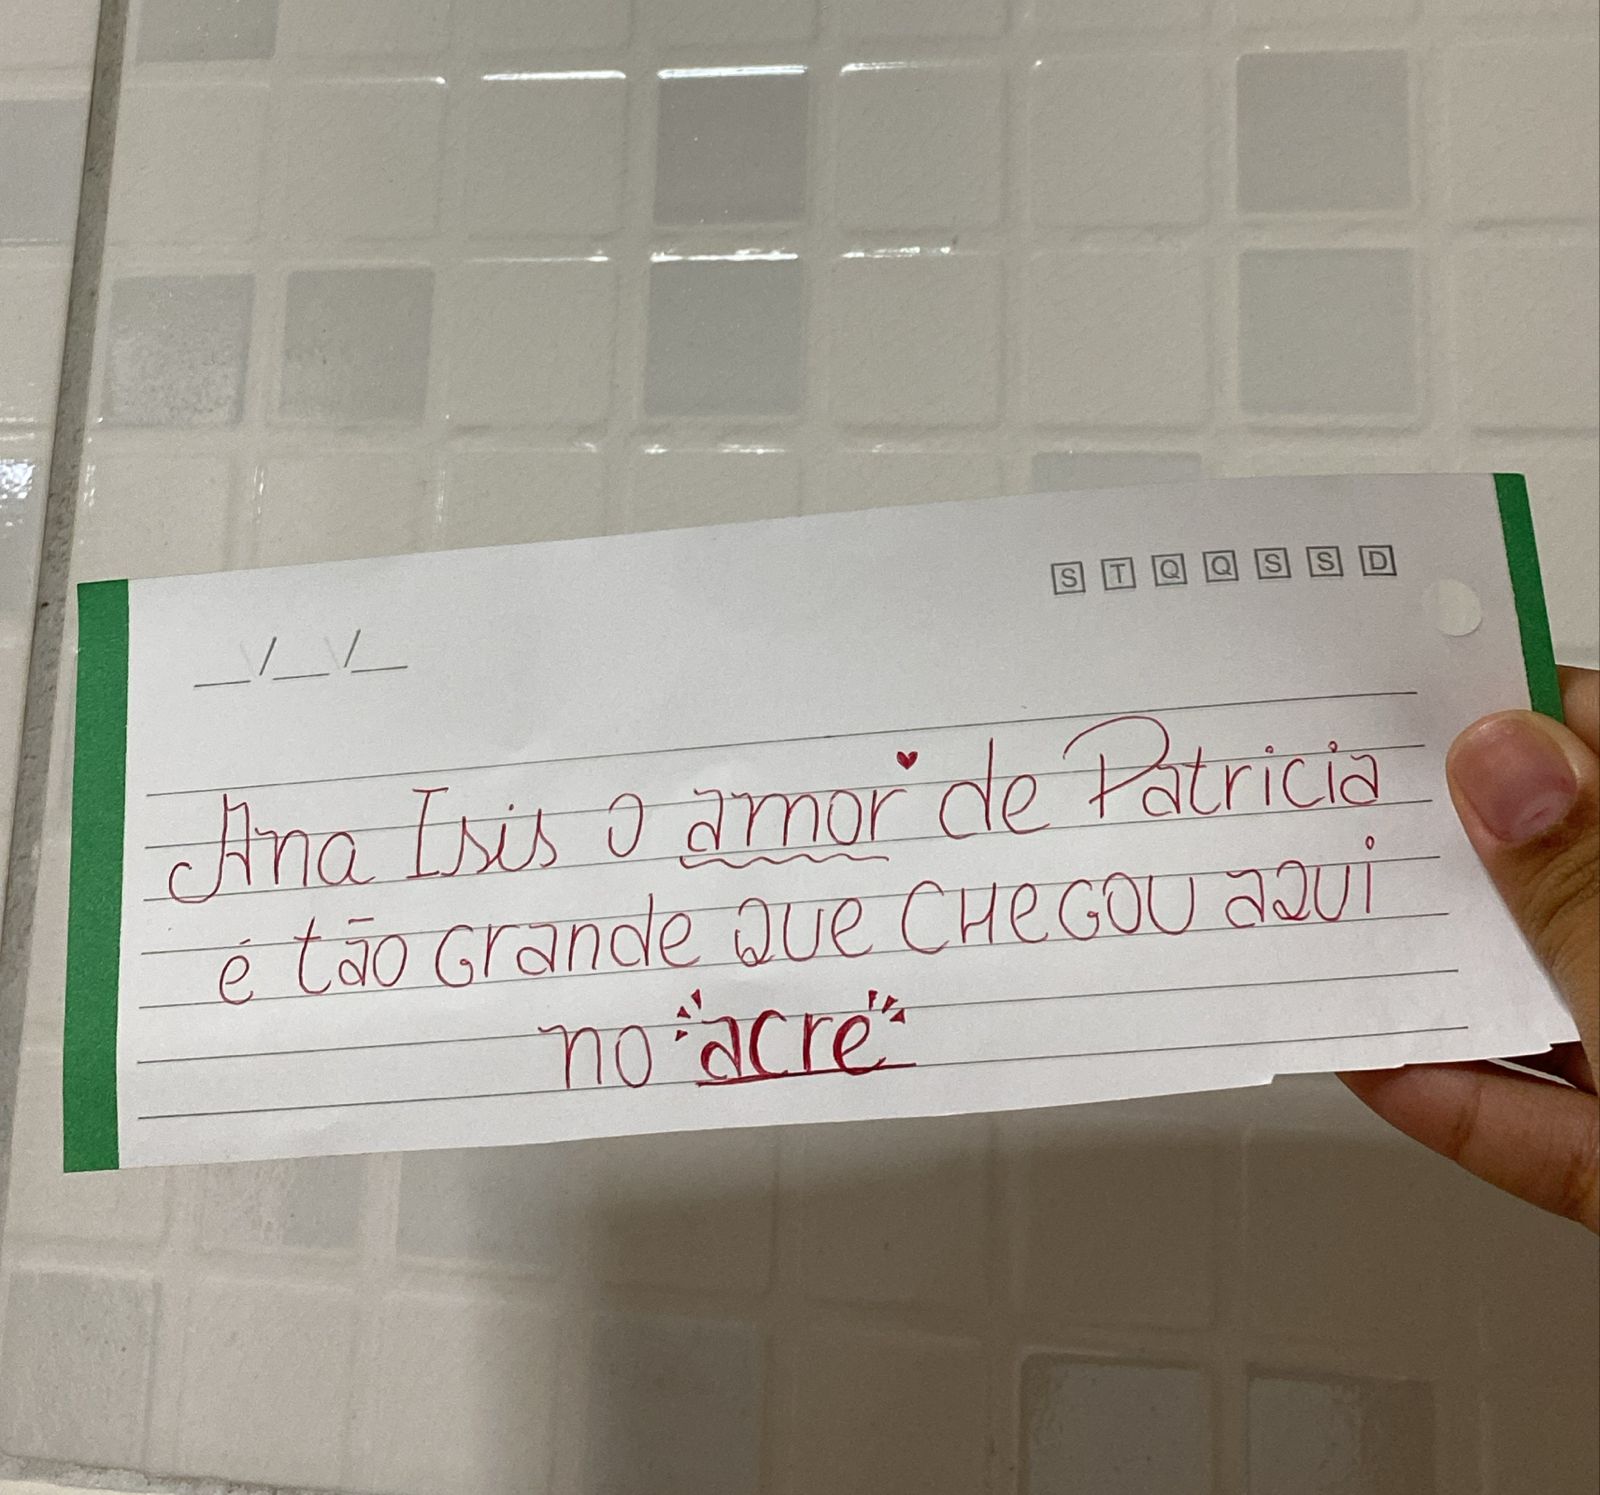 S T Q Q S S D
__/__/__
Ana Isis o amor de Patricia
é tão grande que chegou aqui
no acre